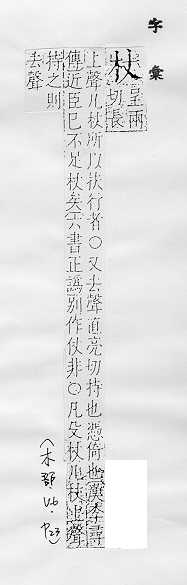 字彙
杖
呈兩
切長
上聲几杖所以扶行者○又去聲直亮切持也憑倚也漢李尋
傳近臣已不足杖矣六書正譌別作仗非○凡殳杖几杖上聲
持之則
去聲
(木部 P23)